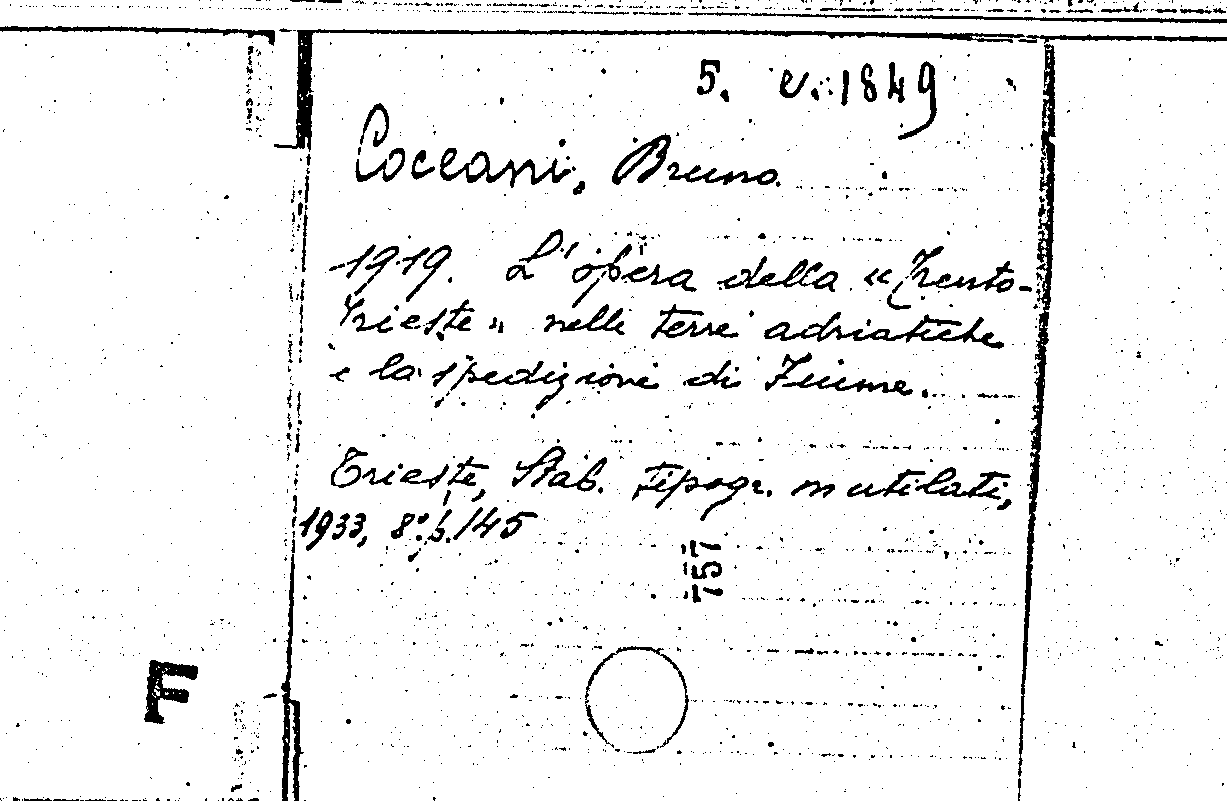 5. e. 1849
Coceani, Bruno
1919. L'opera della «Trento-
Trieste» nelle terre adriatiche
e la spedizione di Fiume.
Trieste, Stab. tipogr. mutilati,
1933, 8.º p. 145
757
F